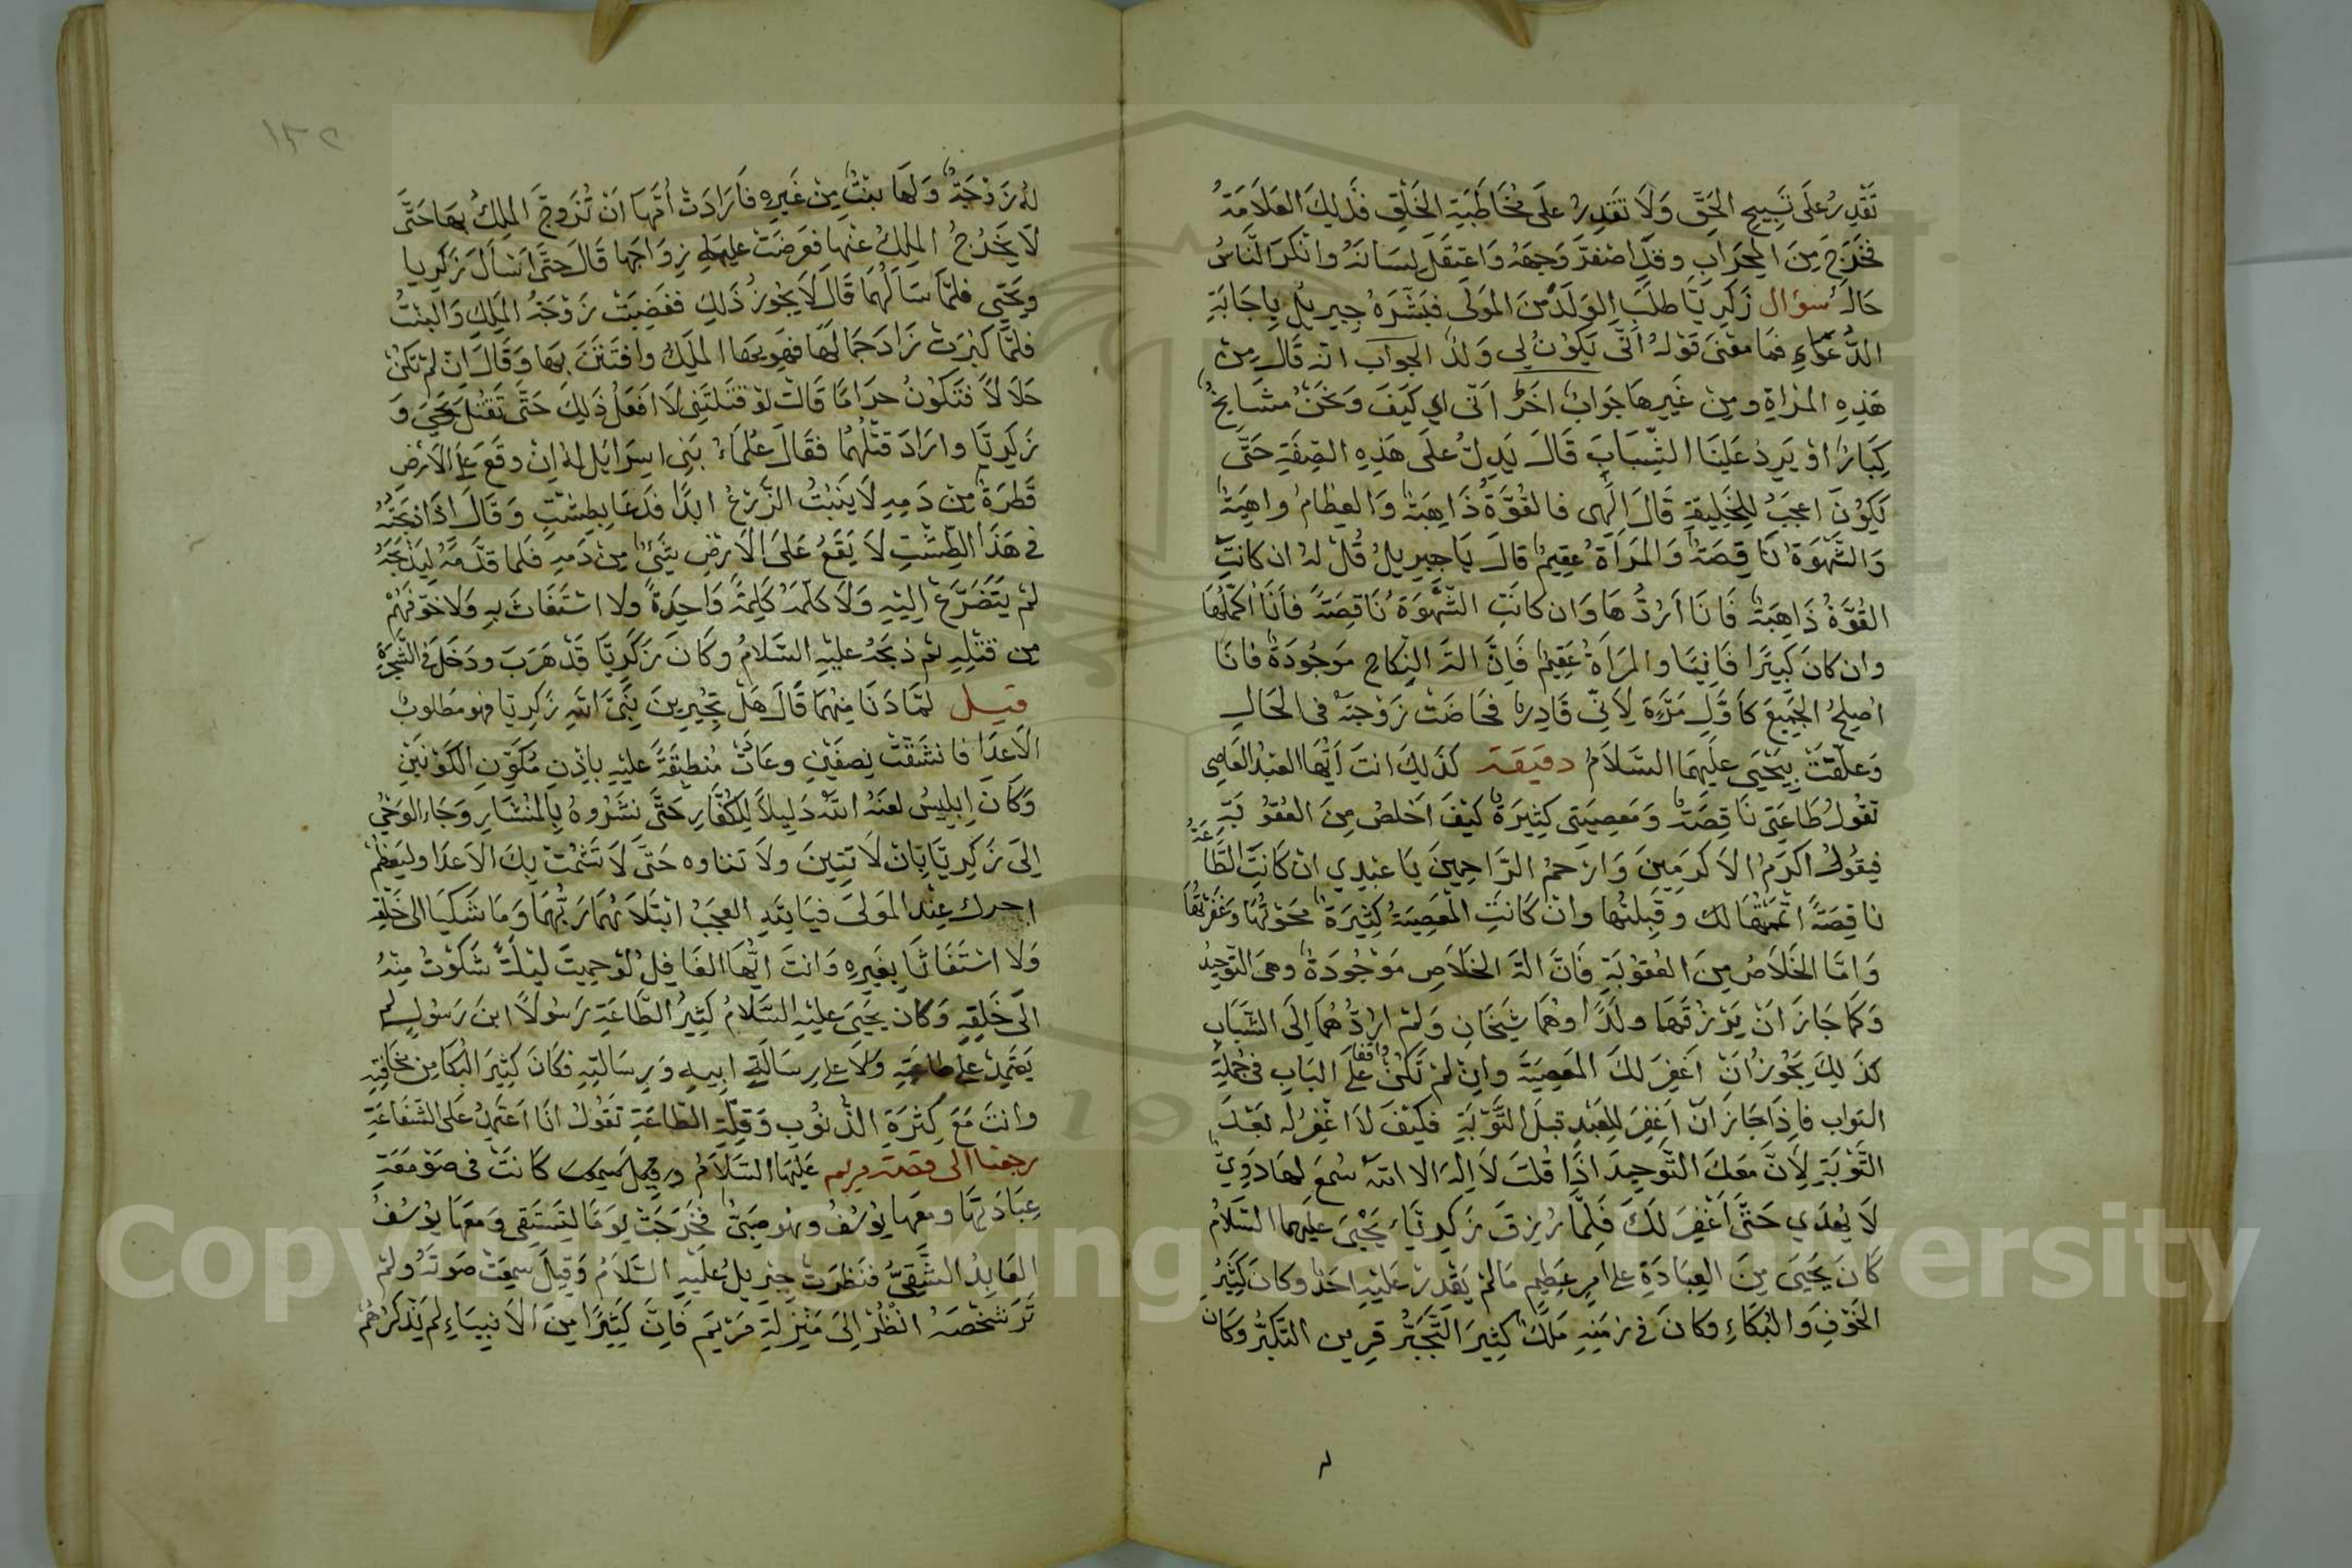 تَقْدِرُ عَلَى تَسْبِيحِ الحَقِّ وَلَا تَقْدِرُ عَلَى مُخَاطَبَةِ الخَلْقِ فَذَلِكَ العَلَامَةُ
فَخَرَجَ مِنَ المِحْرَابِ وقد اصْفَرَّ وَجْهُهُ وَاعْتَقَلَ لِسَانُهُ وانْكَرَ النَّاسُ
حَالَهُ سؤال زَكَرِيَّا طَلَبَ الوَلَدَ مِنَ المَوْلَى فَبَشَّرَهُ جِبْرِيلُ بِاجَابَةِ
الدُّعَاءِ فمَا مَعْنَى قَوْلِهِ أَنَّى يَكُونُ لِي وَلَدٌ الجواب انه قَالَ مِنْ
هَذِهِ المَرْأَةِ ومِنْ غَيْرِهَا جَوَابٌ اخَرُ انَّى اي كَيْفَ وَنَحْنُ مَشَايِخُ
كِبَارٌ اوْ يَرِدُ عَلَيْنَا الشَّبَابُ قَالَ يَدِلُّ عَلَى هَذِهِ الصِّفَةِ حَتَّى
يَكُونَ اعْجَبُ لِلْخَلِيقَةِ قَالَ اِلَهِى فالقُوَّةُ ذَاهِبَةٌ وَالعِظَامُ واهِيَةٌ
وَالشَّهْوَةُ نَاقِصَةٌ وَالمَرْأَةُ عَقِيمٌ قالَ يَا جِبْرِيلُ قُلْ لهُ ان كانتِ
القُوَّةُ ذَاهِبَةً فَانَا ارُدُّهَا وَان كانَتِ الشَّهْوَةُ نَاقِصَةً فانَا اكَمِّلُهَا
وان كانَ كَبِيرًا فَانِيًا والمَرْأَةُ عَقِيمٌ فَاِنَّ الة النِكَاحِ مَوْجُودَةٌ فانَا
اصْلِحُ الجَمِيعَ كَاوَّلِ مَرَّةٍ لِانِّي قَادِرٌ فَحَاضَتْ زَوْجَتُهُ فى الحَالِ
وَعَلِقَتْ بِيَحْيَى عَلَيْهِمَا السَّلَامُ دقيقة كَذَلِكَ انتَ ايُّهَا العَبْدُ العَاصِى
تَقُولُ طَاعَتِى نَاقِصَةٌ وَمَعْصِيَتِى كَثِيرَةٌ كَيْفَ اخْلُصُ مِنَ العُقُوبَةِ
فيقُولُ اكْرَمُ الاكْرَمِينَ وَارْحَمُ الرَّاحِمِينَ يَا عَبْدِي انْ كَانَتِ الطَّاعَةُ
ناقِصَةً اتْمَمْتُهَا لك وقَبِلتُها وانْ كَانَتِ المَعْصِيَةُ كَثِيرَةً محَوْتُهَا وغَفَرْتُهَا
وَامَّا الخَلَاصُ مِنَ العُقُوبَةِ فَانَّ الة الخَلَاصِ مَوْجُودَةٌ وهى التَّوحِيدُ
وَكمَا جَازَ انْ يَرْزُقَهُمَا ولَدًا وهُمَا شَيْخَانِ وَلَمْ ارُدُّهُمَا اِلَى الشَّبَابِ
كذَلِكَ يَجُوزُ انْ اغْفِرَ لكَ المَعْصِيَةَ وانِ لمْ تَكُنْ واقفا عَلَى البَابِ فى جُمْلَةِ
التواب فاِذَا جَازَ انْ اغْفِرَ لِلعَبْدِ قبلَ التَّوْبَةِ فكَيْفَ لا اغْفِرُ له بَعْدَ
التَّوْبَةِ لِانَّ مَعَكَ التَّوحِيدَ اذَا قُلْتَ لَا اِلَهَ الا الله سُمِعَ لهَا دَوِيٌّ
لَا يَهْدَي حَتَّى اغْفِرَ لَكَ فَلِمَّا رُزِقَ زَكَرِيَّاءَ يَحْيَى عَلَيْهِما السَّلَامُ
كَانَ يَحْيَى مِنَ العِبَادَةِ على امْرٍ عَظِيمٍ مَا لمْ يَقْدِرْ عَلَيْهِ احَدٌ وكانَ كَثِيرُ
الخَوْفِ وَالبُكَاءِ وكَانَ فى زمَنِهِ مَلِكٌ كَثِيرَ التَّجَبُّرِ قرِين التكبُّرِ وكَانَ
لهُ زَوْجَةٌ وَلَهَا بِنْتٌ مِنْ غَيْرِهِ فَارَادَتْ امُّهَا انْ تُزَوِّجَ المَلِكُ بهَا حَتَّى
لَا يَخْرُجُ المَلِكُ عنهَا فعَرَضَتْ عليه زوَاجَهَا قَالَ حَتَّى اسْألَ زَكَرِيا
ويَحْيَى فلمَّا سَالَهُمَا قَالَ لَا يَجُوزُ ذَلِكَ فغَضِبَتْ زَوْجَةُ المَلِكِ وَالبِنْتُ
فلمَّا كَبُرَتْ زَادَ جَمَالُهَا فهَوِيَهَا المَلِكُ وافْتَتَنَ بهَا وَقَالَ اِنْ لم تَكُنْ
حَلَالًا فتَكُونُ حرَامًا قَالَتْ لوْ قتَلتَنِى لَا افْعَلُ ذَلِكَ حَتَّى تَقْتُلَ يَحْيَى وَ
زَكَرِيَّا وارَادَ قَتْلَهُمَا فقَالَ عُلمَاءُ بَنِى اسرَائِيل لهُ اِنْ وقَعَ على الارْضِ
قَطرَةٌ مِنْ دَمِهِ لَا يَنْبُتُ الزَّرْعُ ابدًا فدَعَا بِطِشْتٍ وَقَالَ اذَا ذبَحْتُهُ
فى هَذَا الطِّشْتِ لَا يَقَعُ عَلَى الارْضِ شَيْءٌ مِنْ دَمِهِ فَلمَا قدَّمَهُ لِيَذْبَحَهُ
لمْ يَتَضَرَّعْ اِلَيْهِ وَلَا كَلَّمَهُ كَلِمَةً وَاحِدَةً ولا اسْتَغَاثَ بِهِ وَلا خوَّفهُمْ
مِن قَتْلِهِ ثم ذبَحَهُ عليْهِ السَّلامُ وكانَ زَكَرِيَّا قَدْ هَرَبَ ودَخَلَ فى الشَّجَرَةِ
قيل لمَّا دَنَا مِنْهُمَا قَالَ هَلْ تُجِيرِينَ نَبِىَّ اللهِ زَكَرِيَّا فهو مَطلوبُ
الاعدَا فانْشَقَّتْ نِصفَيْنِ وعَادَتْ مُنطَبِقَةً عليْهِ باِذْنِ مُكَوِّنِ الكَوْنَيْنِ
وَكَانَ اِبلِيسُ لعَنَهُ اللهُ دَلِيلًا لِلكُفَّارِ حَتَّى نشَرُوهُ بِالمِنْشَارِ وجَاءَ الوَحْيُ
اِلَى زَكَرِيَّا بِانْ لَا تَئِنَّ ولَا تتاوه حَتَّى لَا تَشْمُتْ بِكَ الاعدَا وليَعْظُمْ
اجرك عِنْدَ المَوْلَى فيَا للهِ العَجَبُ ابْتَلَاهُمَا رَبُّهُمَا وَمَا شَكَيَا الى خَلْقِهِ
وَلَا اسْتَغَاثَا بِغَيْرِهِ وَانتَ ايُّهَا الغَافِلُ لوْ حميتَ ليْلَةً شَكَوْتَ مِنْهُ
اِلَى خَلْقِهِ وَكانَ يَحْيَى عليْهِ السَّلَامُ كَثِيرَ الطَّاعَةِ رَسُولًا ابنَ رَسُولٍ لم
يَعْتَمِدْ على طَاعَتِهِ وَلَا على رِسَالَةِ ابيهِ وَرِسَالَتِهِ فكَانَ كَثِيرَ البُكَا مِن مخَافَتِهِ
وانتَ مَعَ كَثرَةِ الذُّنُوبِ وَقِلَّةِ الطَّاعَةِ تَقُولُ انَا اعْتَمِدُ عَلى الشَّفَاعَةِ
رجعنا الى قصة مريم عَلَيْهَا السَّلَامُ كَانَتْ فى صَوْمَعَةِ
عِبَادَتِهَا ومعهَا يُوسُفُ وهُو صَبِىٌّ فَخَرَجَتْ يوْمًا لِتَسْتَقِى وَمَعَهَا يُوسُفُ
العَابِدُ التَّقِىُّ فنَظَرَتْ جِبْرِيلُ عليْهِ السَّلَامُ وَقِيلَ سَمِعَتْ صَوْتَهُ ولمْ
تَرَ شَخْصَهُ انْظُرْ اِلَى مَنْزِلَةِ مَرْيَمَ فَاِنَّ كَثِيرًا مِنَ الانبِيَاءِ لم يَذْكُرْهُمْ
١٣٢
Copyright © King Saud University